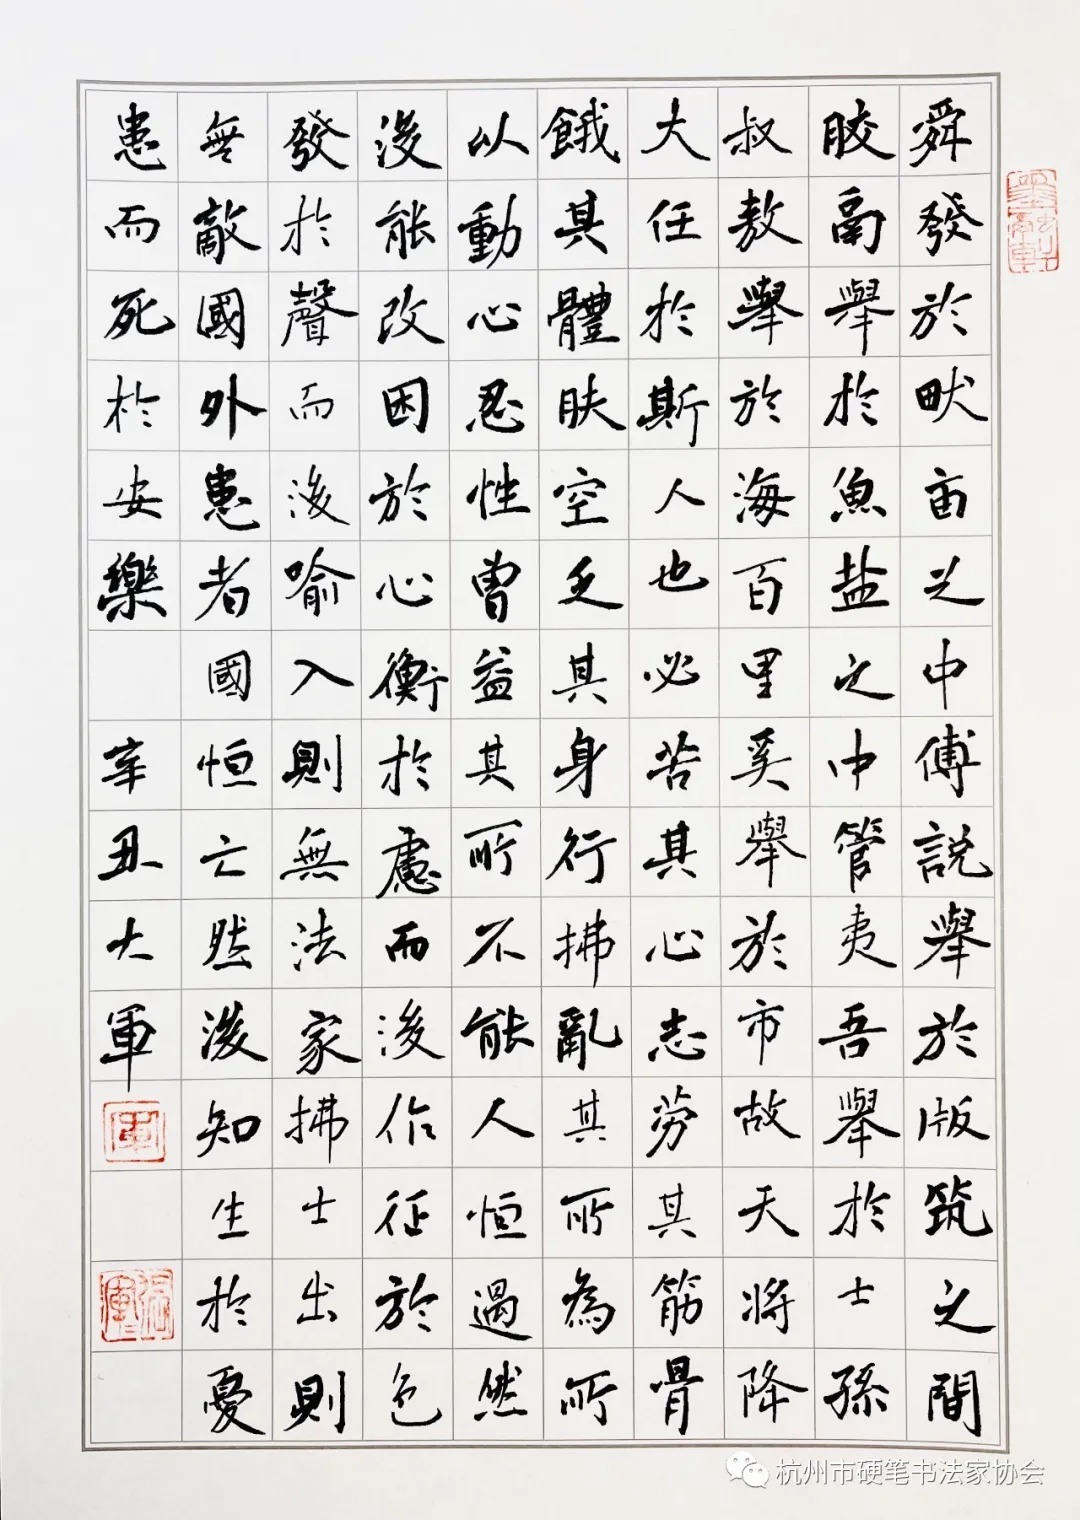 舜發於畎亩之中傅説舉於版筑之間
胶鬲舉於魚盐之中管夷吾舉於士孫
叔敖舉於海百里奚舉於市故天将降
大任於斯人也必苦其心志劳其筋骨
餓其體肤空乏其身行拂亂其所為所
以動心忍性曾益其所不能人恒過然
後能改困於心衡於慮而後作征於色
發於聲而後喻入則無法家拂士出則
無敵國外患者國恒亡然後知生於憂
患而死於安樂 辛丑大軍
軍
杭州市硬笔书法家协会